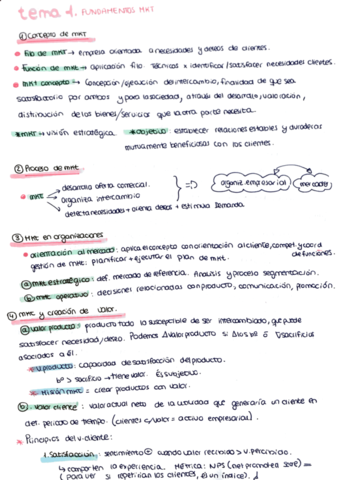 tema 1. FUNDAMENTOS MKT
① Concepto de MKT
• fia de MKT → empresa orientada a necesidades y deseos de clientes.
• función de MKT → aplicación fia técnicas x identificar/satisfacer necesidades clientes.
• MKT concepto → Concepción/ejecución del intercambio, finalidad de que sea
satisfactorio por ambos y para la sociedad, a través del desarrollo, valoración,
distribución de los bienes/servicios que la otra parte necesita.
* MKT → visión estratégica. * objetivo: establecer relaciones estables y duraderas
mutuamente beneficiosas con los clientes.
② Proceso de MKT.
desarrolla oferta comercial.
• MKT organiza intercambio ⇒ organiz empresarial mercado
detecta necesidades + orienta deseos + estimula demanda
③ MKT en organizaciones
• orientación al mercado: aplica el concepto con orientación al cliente, compet. y coord
de funciones.
gestión de MKT: planificar + ejecutar el plan de MKT.
ⓐ MKT estratégico: def. mercado de referencia. Análisis y proceso segmentación.
ⓑ MKT operativo: decisiones relacionadas con producto, comunicación, promoción.
④ MKT y creación de valor.
ⓐ valor producto: producto todo lo susceptible de ser intercambiado, que puede
satisfacer necesidad/deseo. Podemos Δ valor producto si Δ los bº ó ∇ sacrificios
asociados a él.
• V. producto: capacidad de satisfacción del producto.
bº > sacrificio → tiene valor. Es subjetivo.
• Misión MKT = crear productos con valor.
ⓑ valor cliente: valor actual neto de la utilidad que generaría un cliente en
det. periodo de tiempo. (clientes c/valor = activo empresarial).
* Principios del v. cliente:
1. Satisfacción: sentimiento ⊕ cuando valor recibido > v. percibido.
↳ comparten la experiencia. Métrica: NPS (net promoter score) =
(para ver si repetirían los clientes, es un índice).